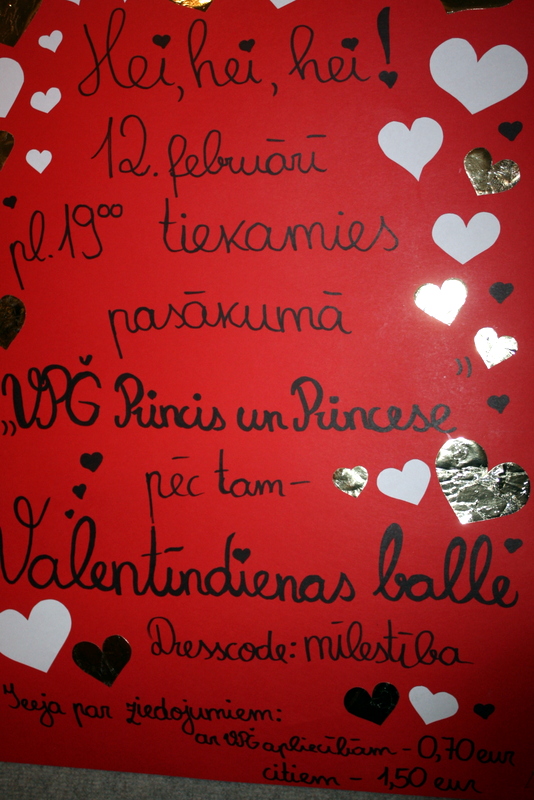 Hei, hei, hei!
12. februārī
pl. 19⁰⁰ tiekamies
pasākumā
„VPĢ Princis un Princese”
pēc tam-
Valentīndienas ballē
Dresscode: mīlestība
Ieeja par ziedojumiem:
ar VPĢ apliecībām - 0,70 eur
citiem - 1,50 eur